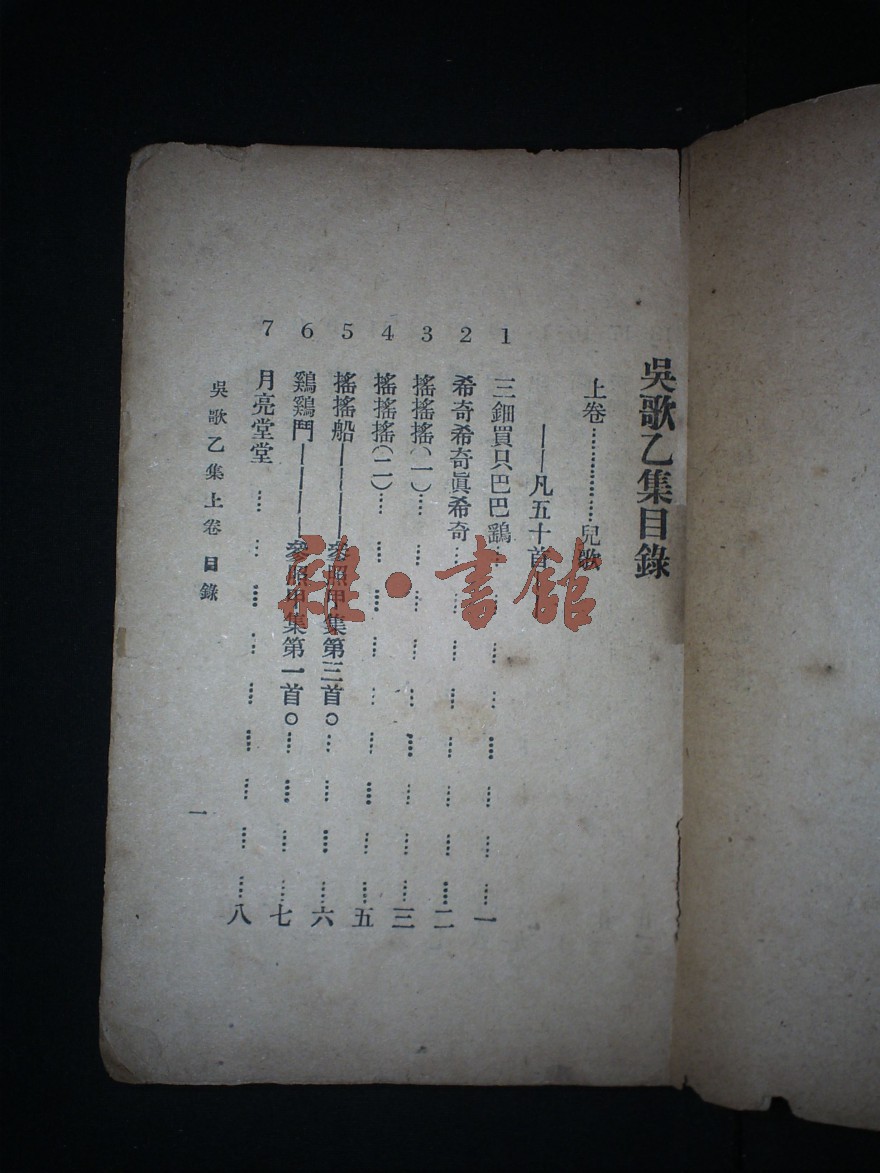 吳歌乙集目錄
上卷………………兒歌
——凡五十首
1 三鈿買只巴巴鷂……………………一
2 希奇希奇眞希奇……………………二
3 搖搖搖(一)……………………三
4 搖搖搖(二)……………………五
5 搖搖船————參照甲集第三首○……………………六
6 鷄鷄鬥————參照甲集第一首○……………………七
7 月亮堂堂……………………八
吳歌乙集上卷 目錄
一
雜·書館